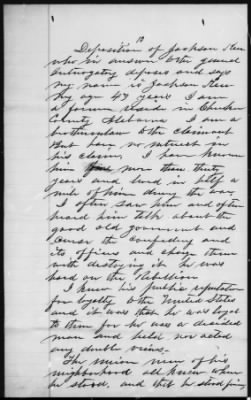 Deposition of Jackson
who in answer to the general
Interogatory deposes and says
my name is Jackson
my age 47 years I am
a farmer reside in
County Alabama I am a
brotherinlaw to the claimant
But have no interest in
his claim, I have known
him more than thirty
years and lived in half a
mile of him during the war,
I often saw him and often
heard him talk about the
good old government and
the and
its officers and
with it he was
hard on the Rebellion
I knew his public reputation
for loyalty to the United States
and it was that he was loyal
to them for he was a decided
man and held nor acted
any double views.
The union men of his
neighborhood all knew where
he stood, and that he stood